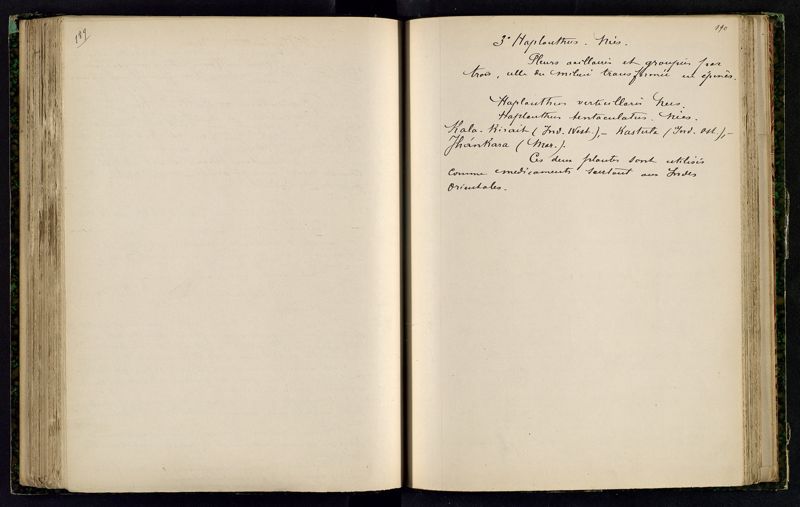 189
190
3° Haplanthus. Nees.
Fleurs axillaires et groupées par
trois, celle du milieu transformée en épines.
Haplanthus verticillaris Nees.
Haplanthus tentaculatus. Nees.
Kala-Kirait (Ind. West.),– Kastula (Ind. Ost.),–
Jhánkara (Mar.).
Ces deux plantes sont utilisés
comme medicaments surtout aux Indes
Orientales.